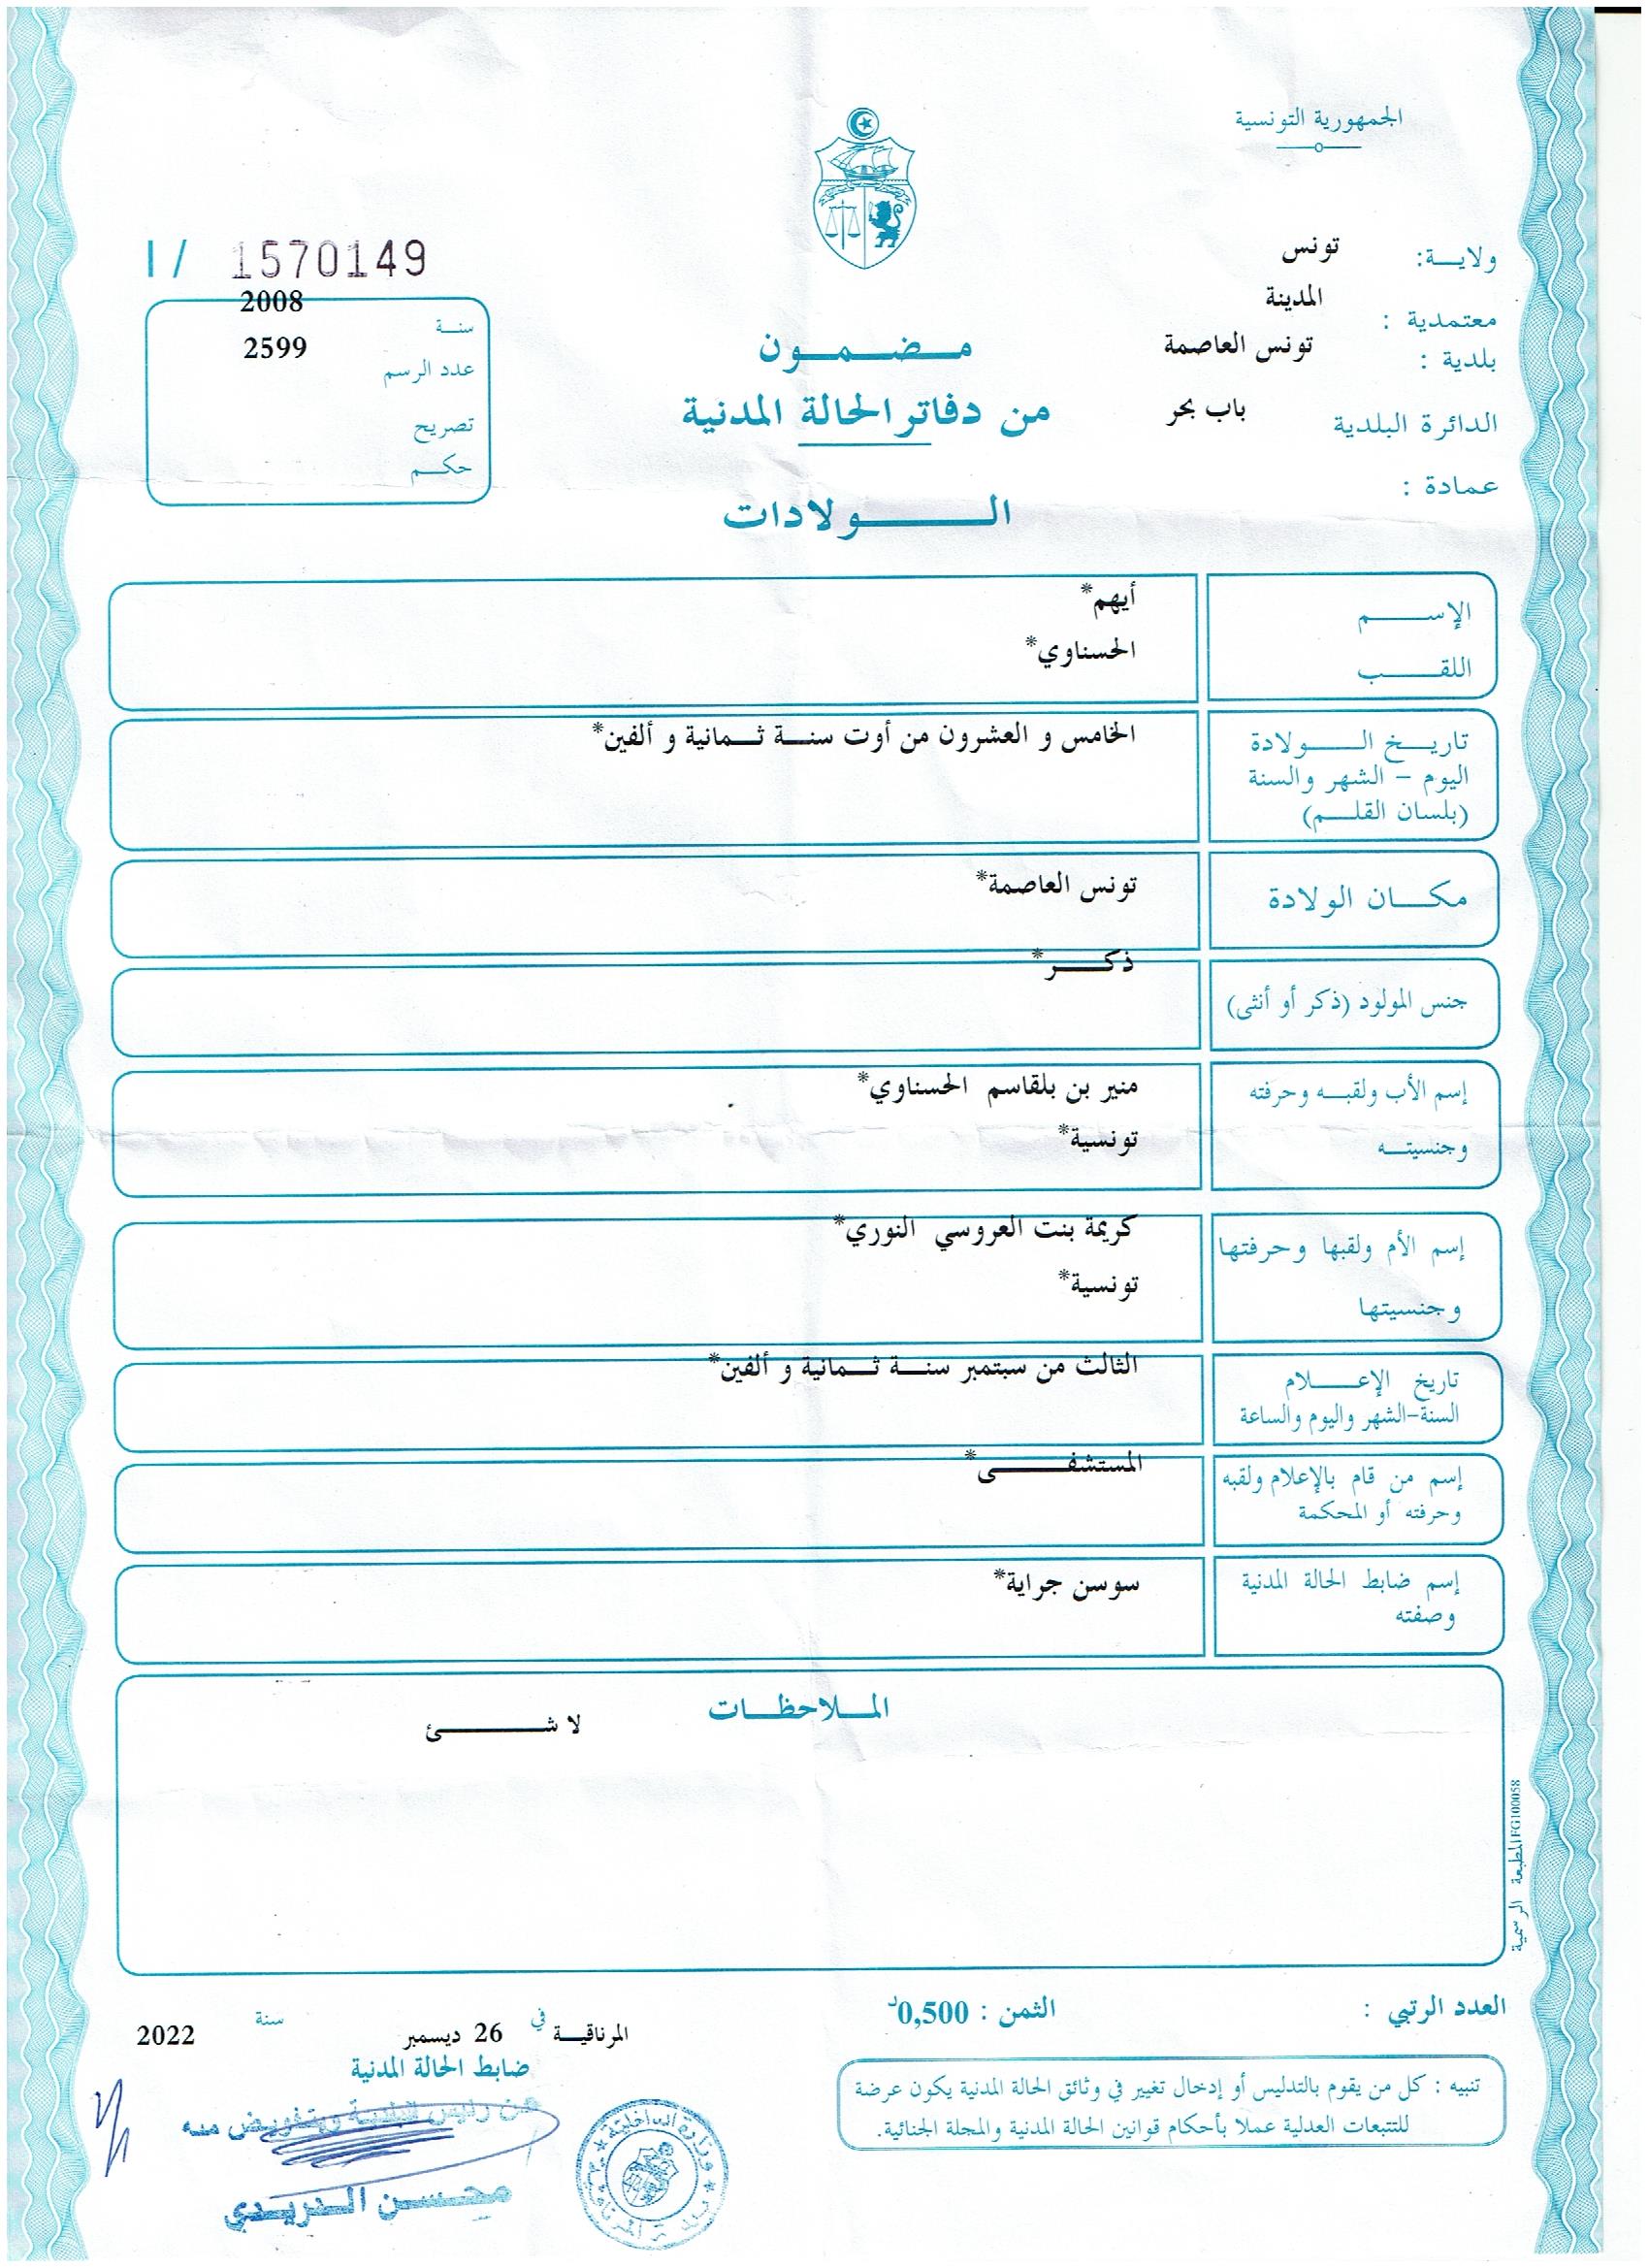 الجمهورية التونسية
ولايـــة: تونس
معتمدية : المدينة
بلدية : تونس العاصمة
الدائرة البلدية باب بحر
عمادة :
I / 1570149
سنـــة 2008
عدد الرسم 2599
تصريح
حكـــم
مـــضـــمـــون
من دفاتر الحالة المدنية
الـــــولادات
الإســـــم أيهم*
اللقـــــب الحسناوي*
تاريـــخ الـــــولادة الخامس و العشرون من أوت سنـــة ثـــمانية و ألفين*
اليوم – الشهر والسنة
(بلسان القلـــم)
مكـــان الولادة تونس العاصمة*
جنس المولود (ذكر أو أنثى) ذكـــــر*
إسم الأب ولقبـــه وحرفته منير بن بلقاسم الحسناوي*
وجنسيتـــه تونسية*
إسم الأم ولقبها وحرفتها كريمة بنت العروسي النوري*
وجنسيتها تونسية*
تاريخ الإعـــــلام الثالث من سبتمبر سنـــة ثـــمانية و ألفين*
السنة-الشهر واليوم والساعة
إسم من قام بالإعلام ولقبه المستشفـــــى*
وحرفته أو المحكمة
إسم ضابط الحالة المدنية سوسن جراية*
وصفته
المـــلاحظـــات
لا شـــــئ
المطبعة الرسمية FG100058
العدد الرتبي :
الثمن : 0,500د
المرناقيـــة في 26 ديسمبر سنة 2022
ضابط الحالة المدنية
عن رئيس البلدية وبتفويض منه
محسن الدريدي
وزارة الداخلية
تنبيه : كل من يقوم بالتدليس أو إدخال تغيير في وثائق الحالة المدنية يكون عرضة
للتتبعات العدلية عملا بأحكام قوانين الحالة المدنية والمجلة الجنائية.